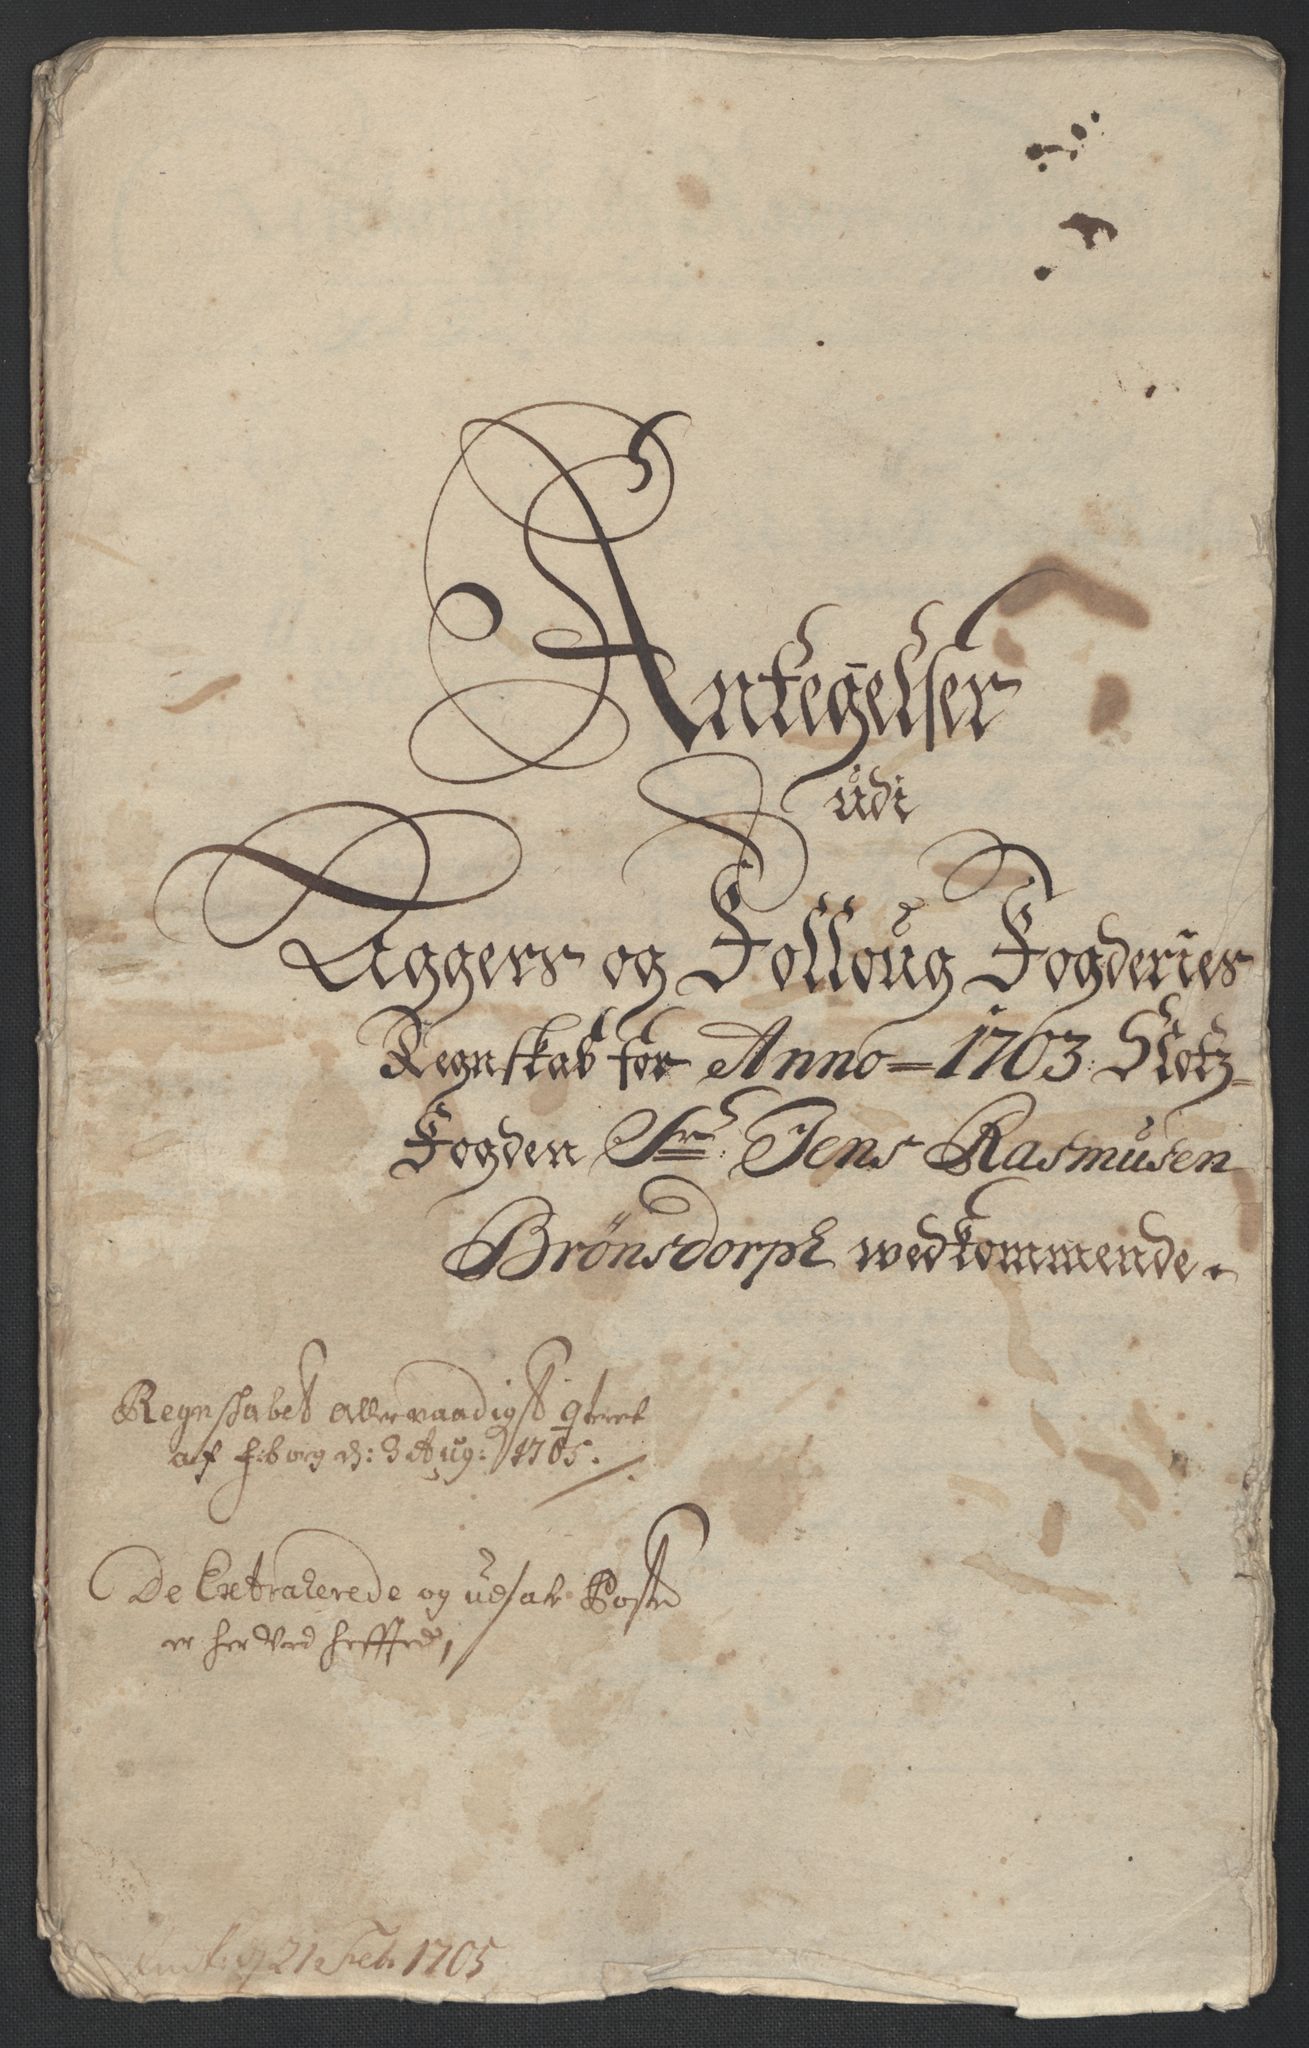 Antegelser
udi
Aggers og Folloug Fogderies
Regnskab for Anno=1703. Slotz-
Fogden Sr: Jens Rasmusen
Brönsdorph wedkommende.
Regnskabet allernaadigst qteret
af Fr:borg d: 3 Aug: 1705.
De Extraherede og udsatte Poster
er her ved hefftede,
21 Feb. 1705